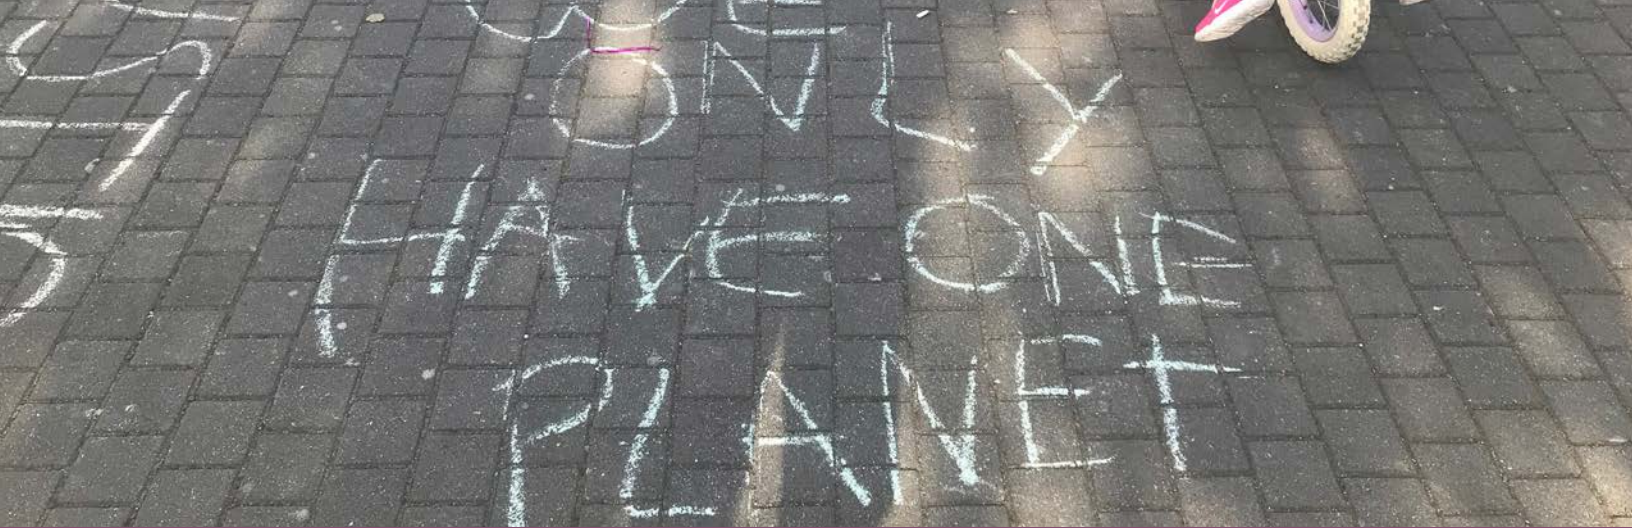 WE
ONLY
HAVE ONE
PLANET